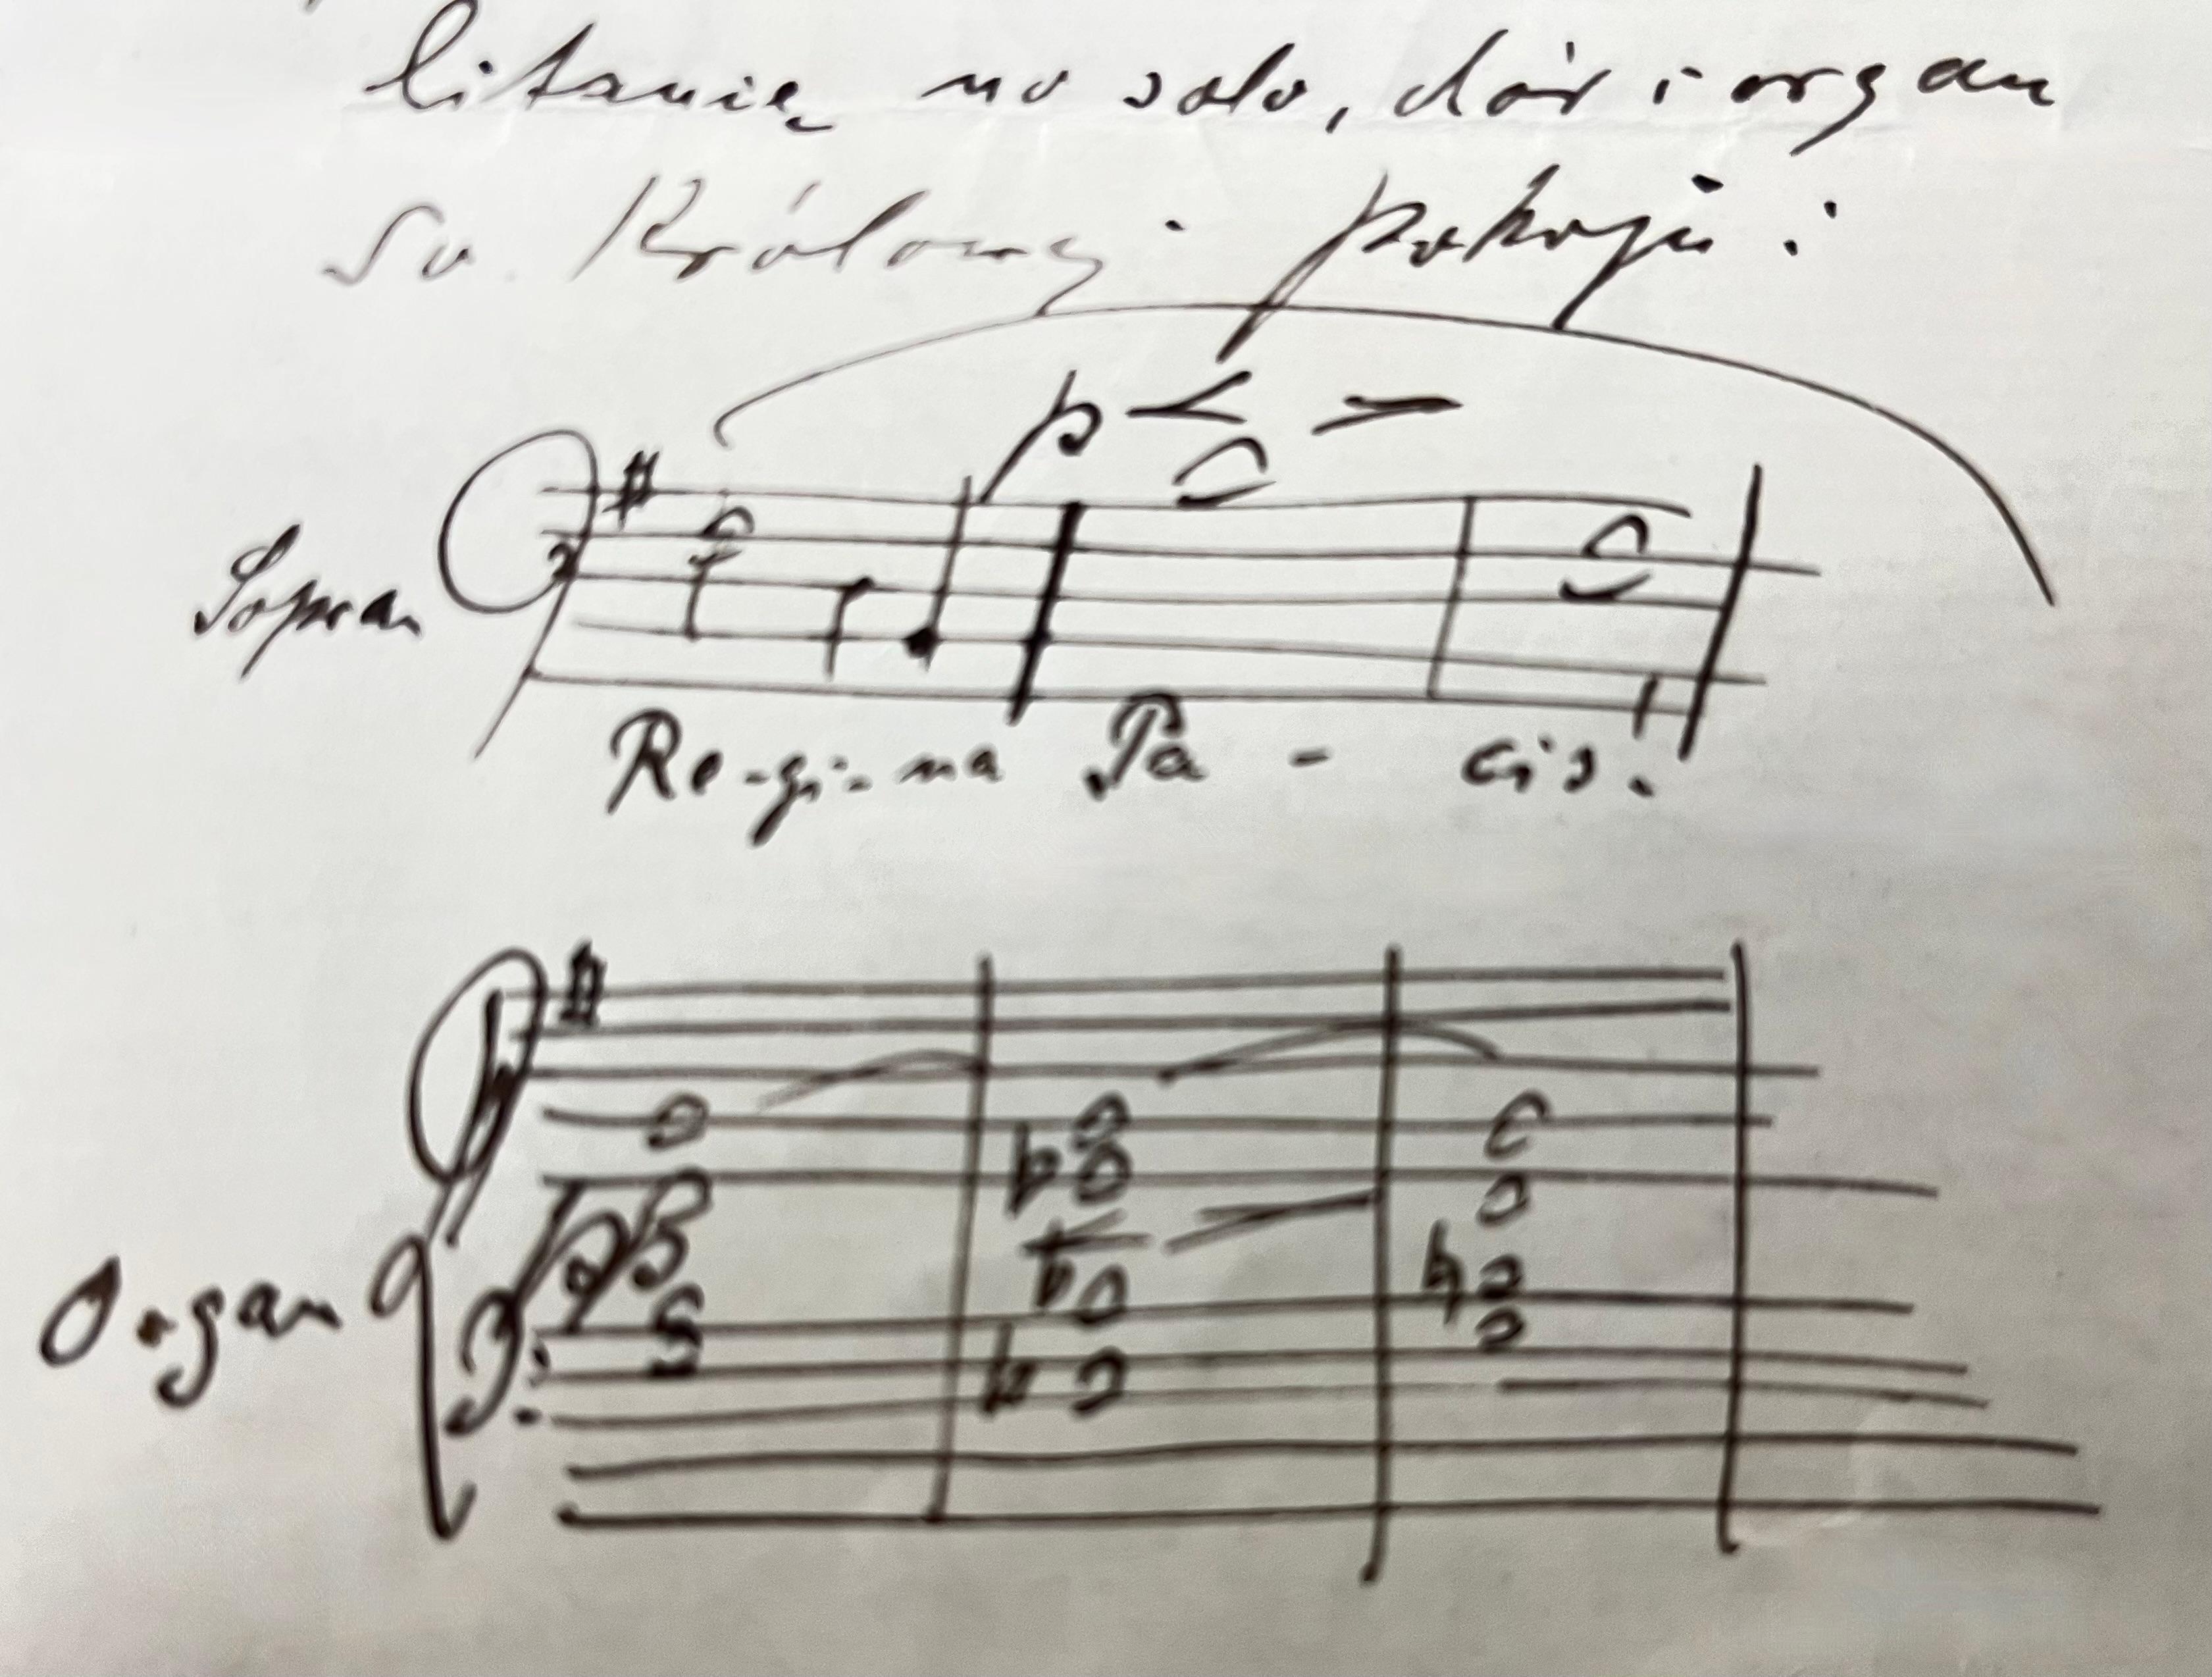 litanię na solo, chór i organ
do Królowej pokoju:
p
Sopran
Re-gi-na Pa - cis!
Organ